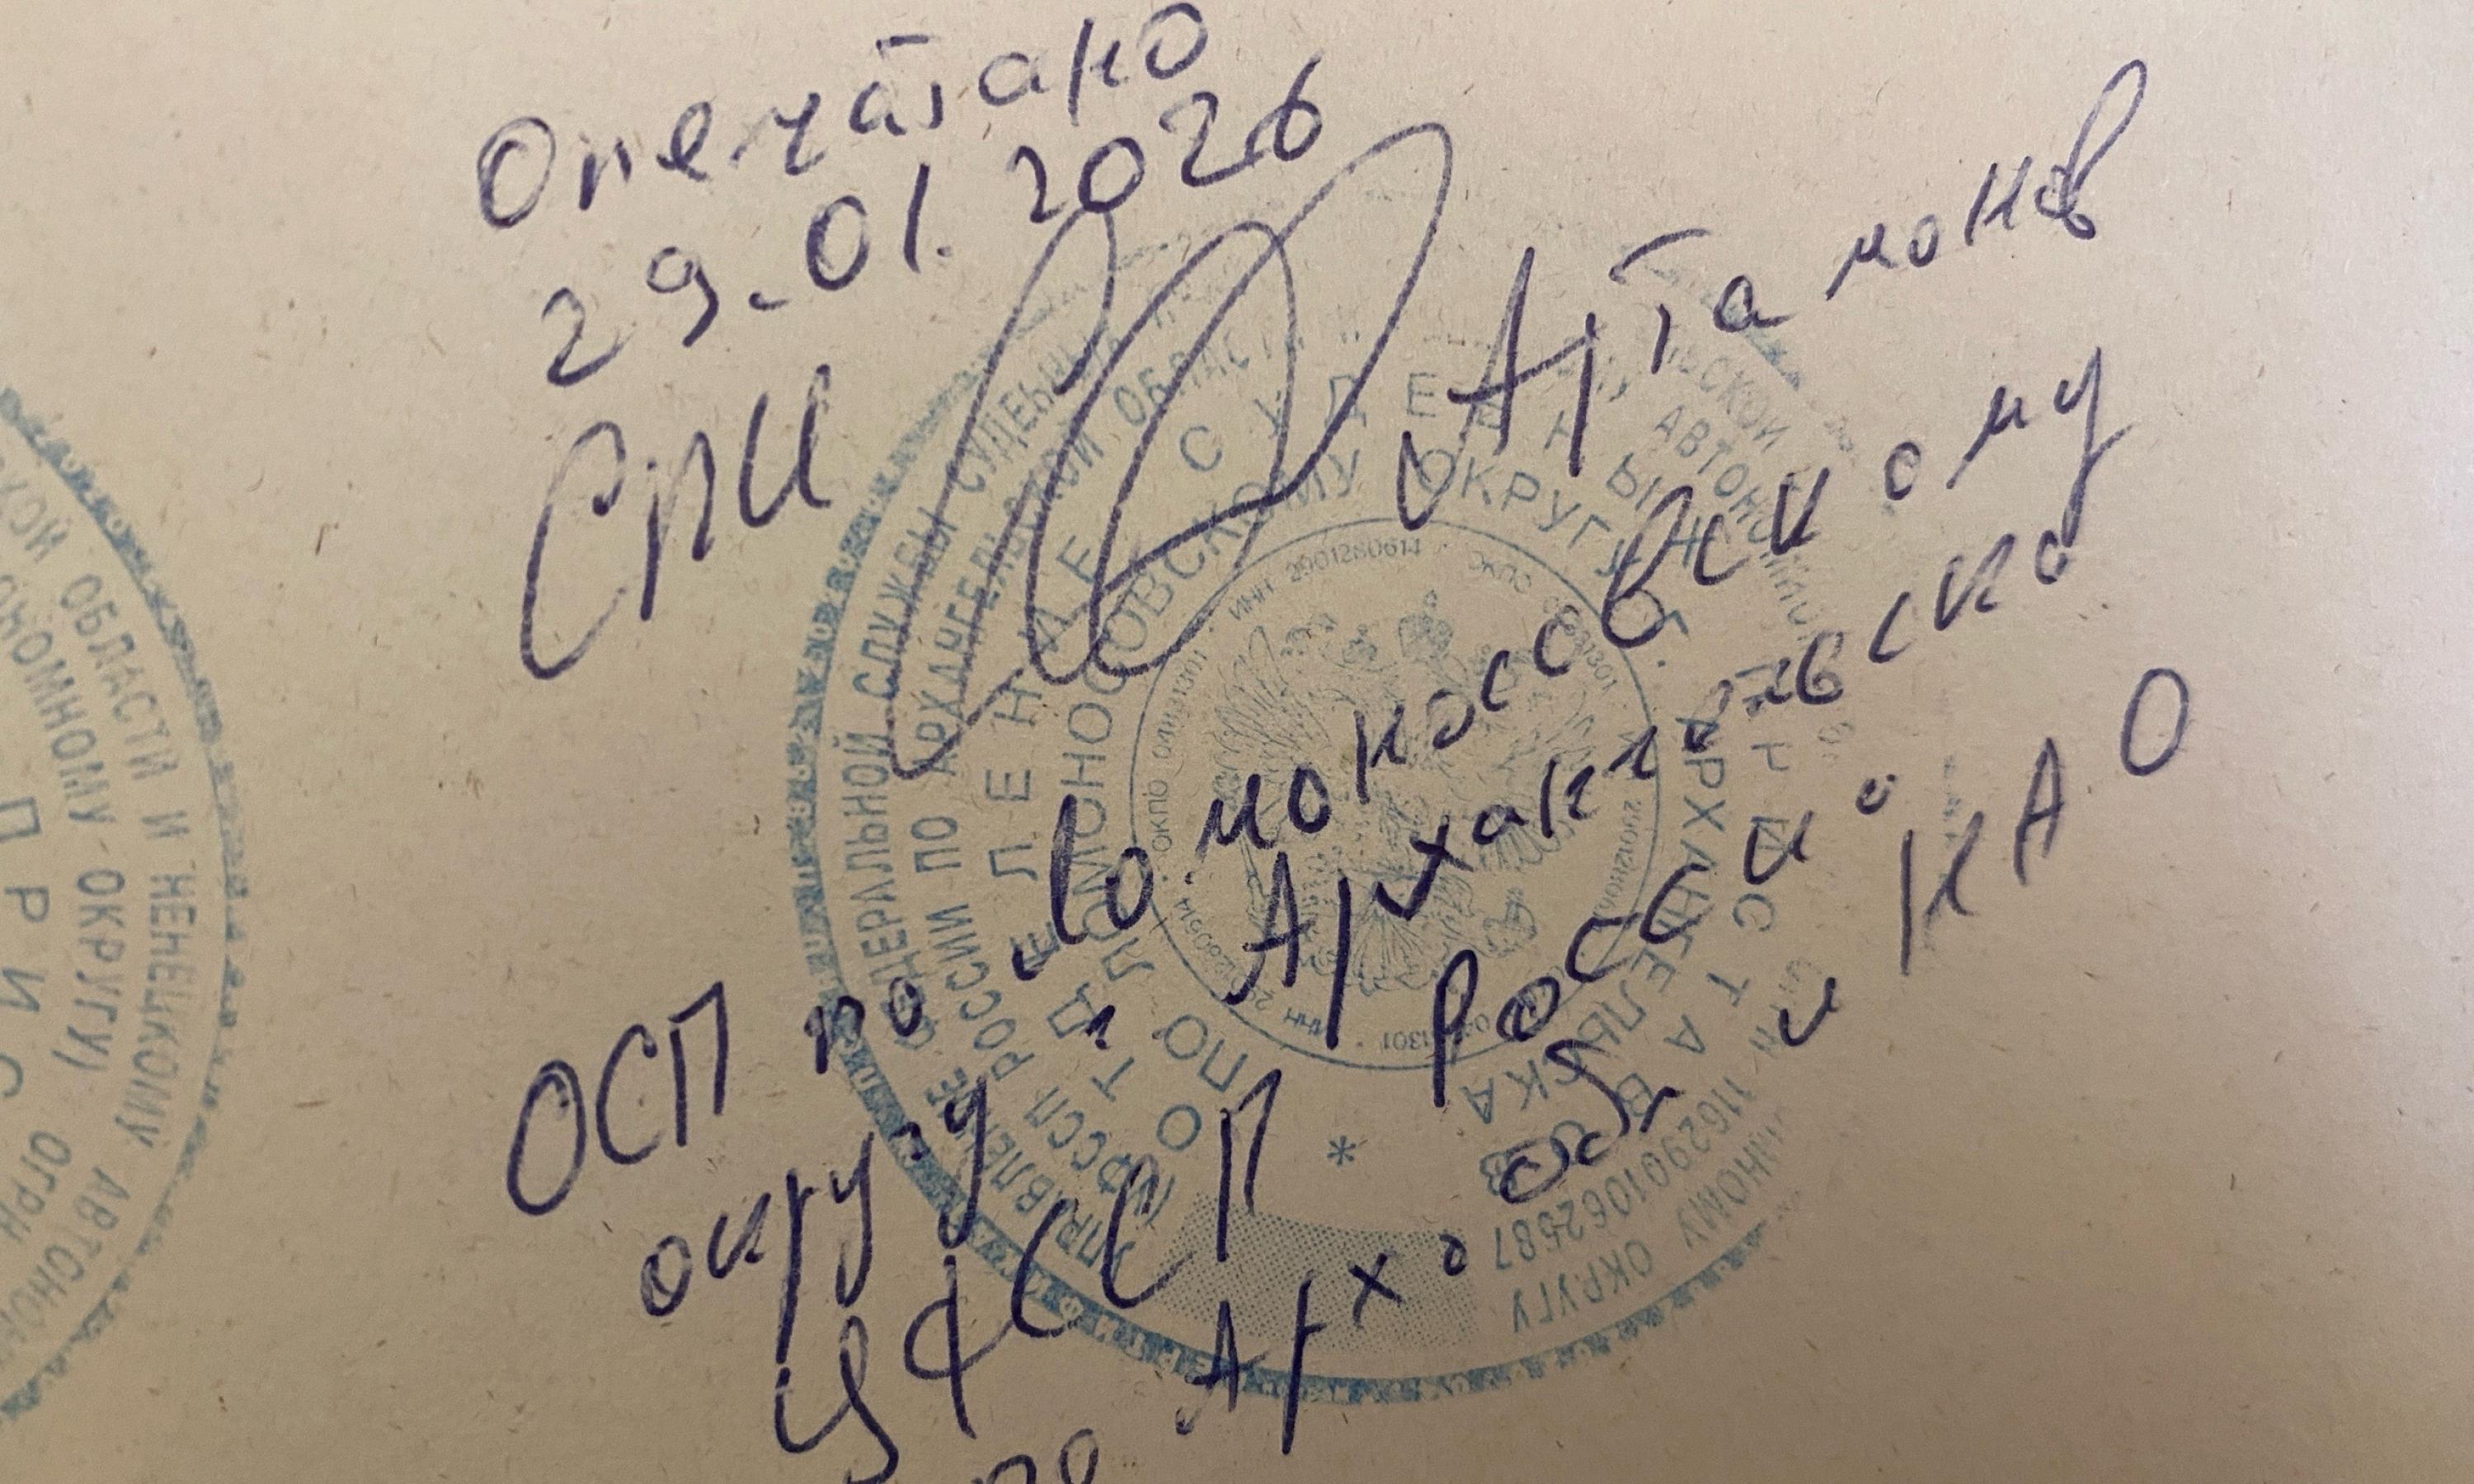 Опечатано
29.01.2026
СПИ Артамонов
ОСП по Ломоносовскому
округу г. Архангельска
УФССП России
по Арх. обл. и НАО
УПРАВЛЕНИЕ ФЕДЕРАЛЬНОЙ СЛУЖБЫ СУДЕБНЫХ
(УФССП РОССИИ ПО АРХАНГЕЛЬСКОЙ ОБЛАСТИ И
АВТОНОМНОМУ ОКРУГУ
1162901062587
ОТДЕЛЕНИЕ СУДЕБНЫХ ПРИСТАВОВ
ПО ЛОМОНОСОВСКОМУ ОКРУГУ Г. АРХАНГЕЛЬСКА
ИНН 2901280614 ОКПО
*
ОБЛАСТИ И НЕНЕЦКОМУ АВТОНОМ
ОНОМНОМУ ОКРУГУ) ОГРН
ПРИС